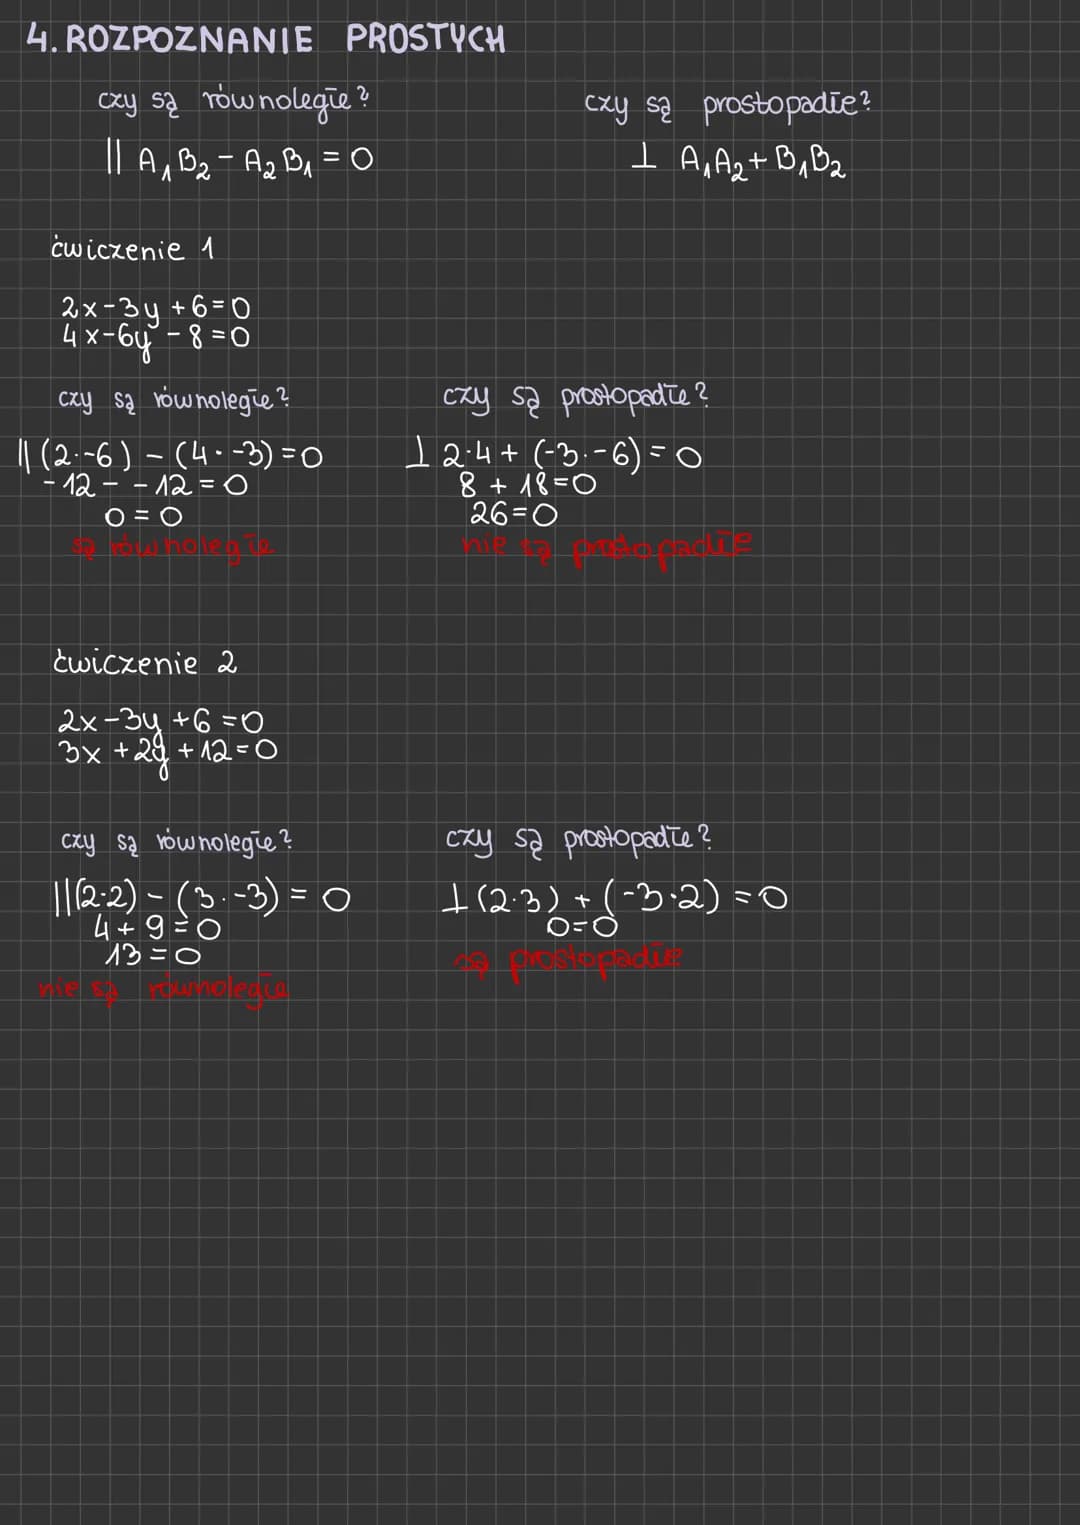 4. ROZPOZNANIE PROSTYCH
czy są równoległe?
|| A₁B₂ - A₂B₁ = 0
czy są prostopadłe?
⊥ A₁A₂ + B₁B₂
ćwiczenie 1
2x-3y+6=0
4x-6y-8=0
czy są równoległe?
|| (2·-6) - (4·-3) = 0
-12 - -12 = 0
0 = 0
są równoległe
czy są prostopadłe?
⊥ 2·4 + (-3·-6) = 0
8 + 18 = 0
26 = 0
nie są prostopadłe
ćwiczenie 2
2x-3y+6=0
3x+2y+12=0
czy są równoległe?
|| (2·2) - (3·-3) = 0
4 + 9 = 0
13 = 0
nie są równoległe
czy są prostopadłe?
⊥ (2·3) + (-3·2) = 0
0=0
są prostopadłe